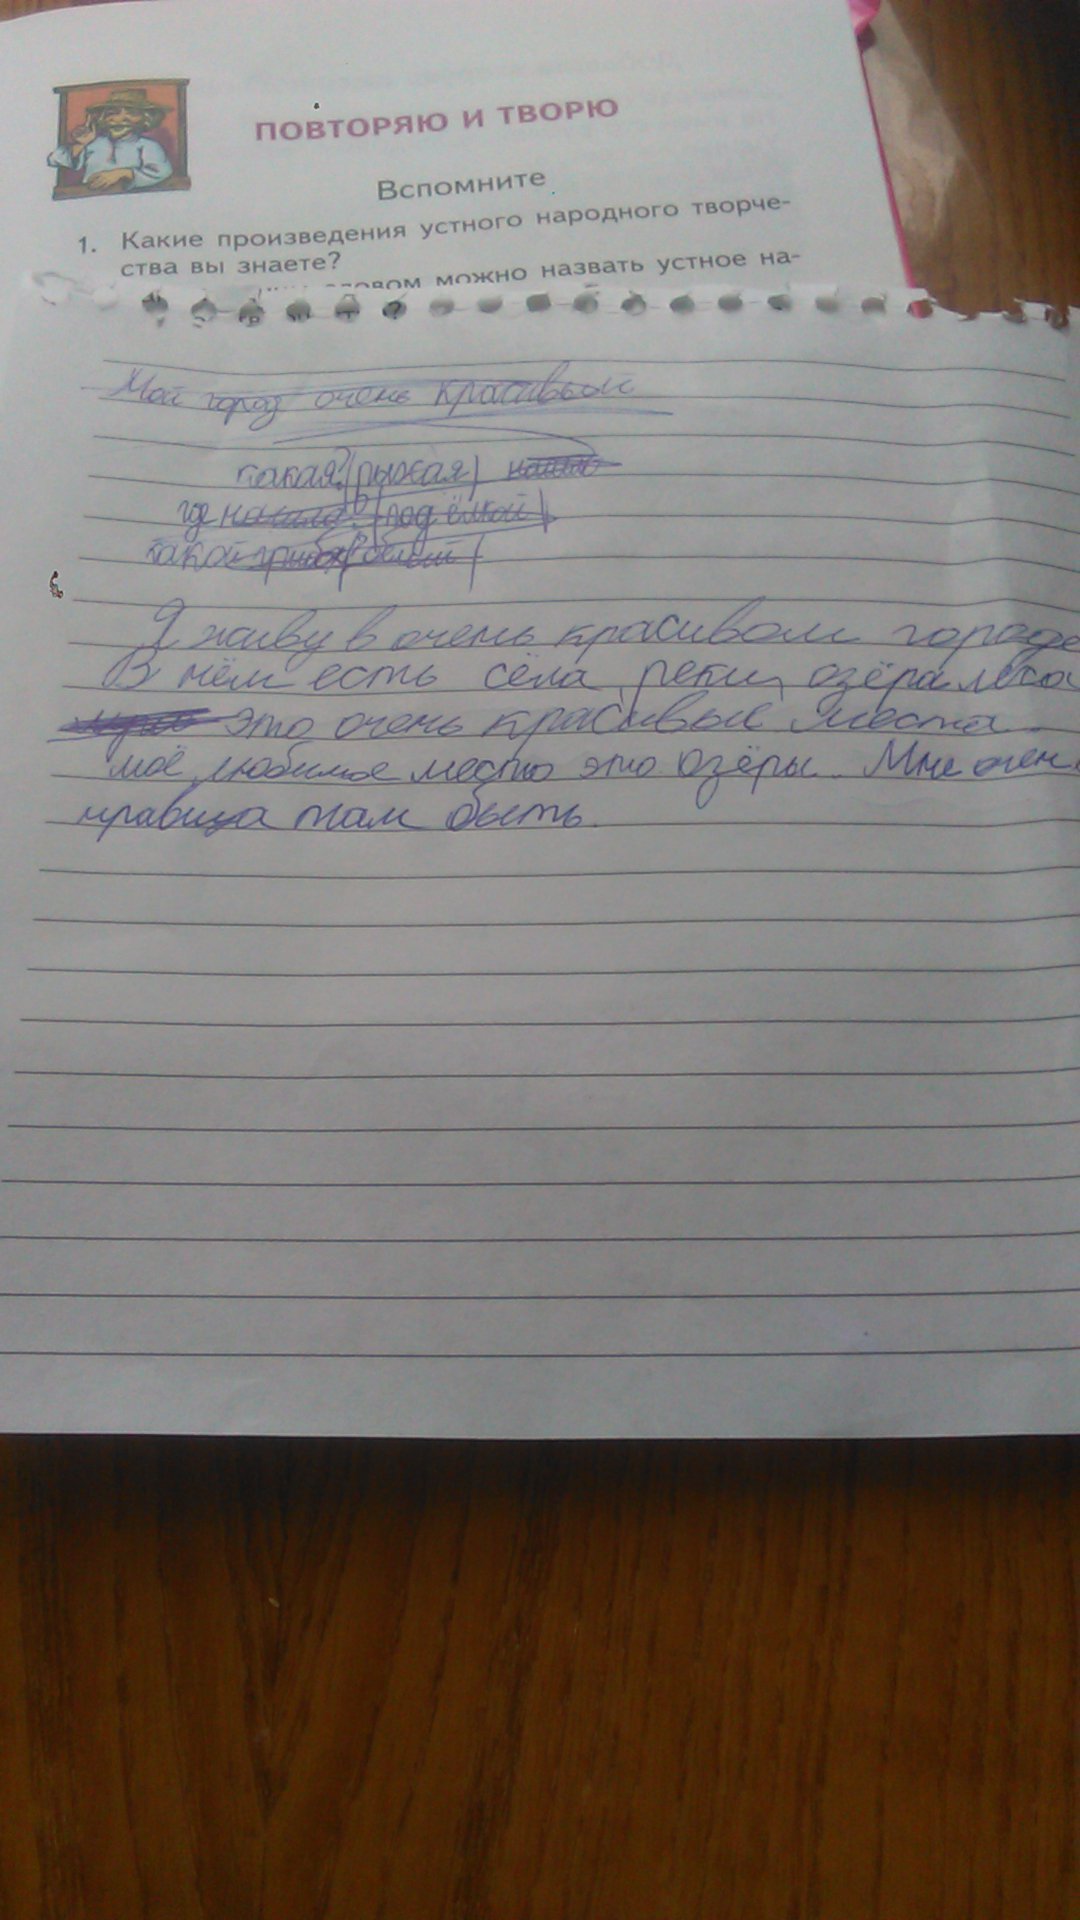 ПОВТОРЯЮ И ТВОРЮ
Вспомните
1. Какие произведения устного народного творче-
ства вы знаете?
словом можно назвать устное на-
Мой город очень красивый
какая? рыжая
где под ёлкой
какой белый
Я живу в очень красивом городе
В нём есть сёла, реки, озёра леса
это очень красивые места
моё любимое место это озёры. Мне очен
нравица там быть.